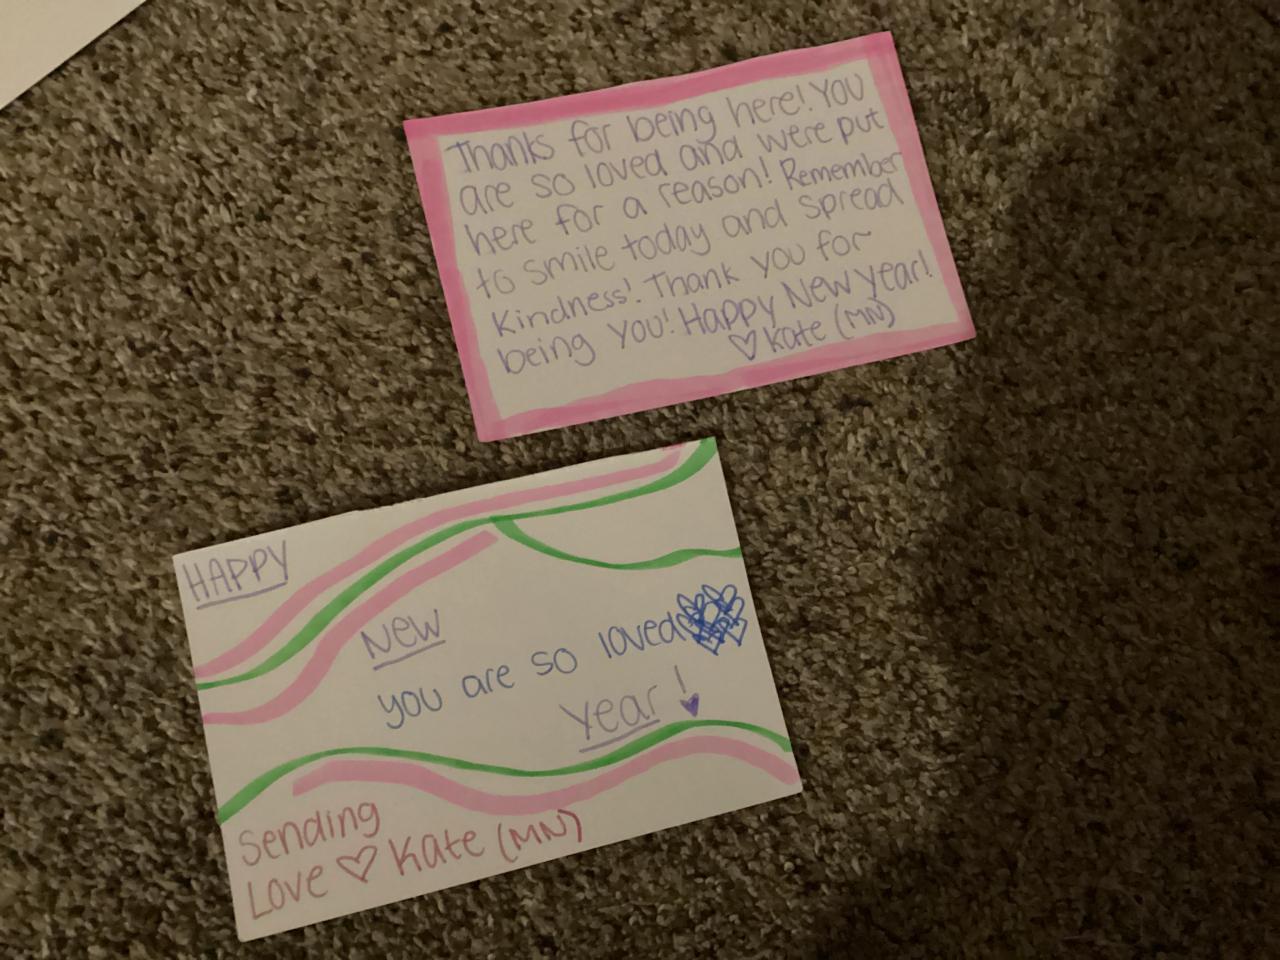 Thanks for being here! You
are so loved and were put
here for a reason! Remember
to smile today and spread
Kindness! Thank you for
being you! Happy New Year!
♡ Kate (MN)
HAPPY
New
you are so loved
Year!
Sending
Love ♡ Kate (MN)